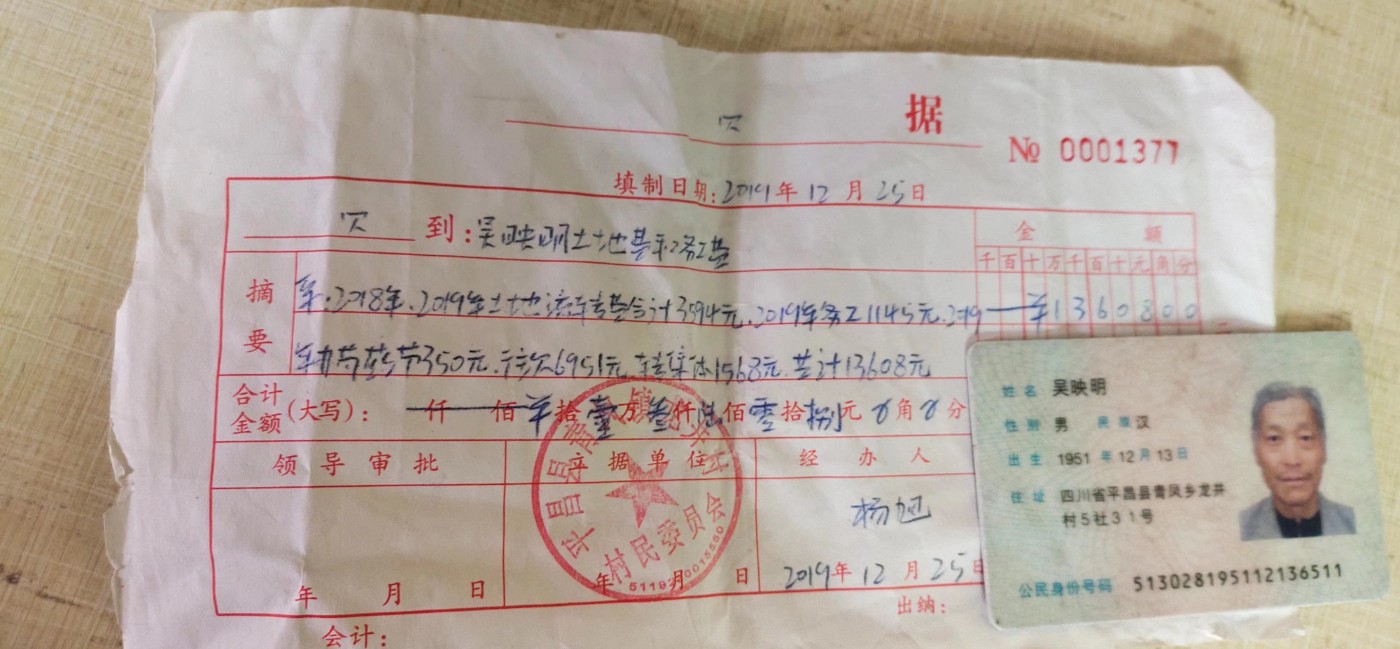 欠 据
№ 0001377
填制日期：2019年12月25日
欠 到：吴映明土地基车.务工垫
金 额
千百十万千百十元角分
摘要
2018年.2019年土地流转垫合计3594元.2019年务工1145元.2019
¥1360800
350元.欠6951元.1568元.共计13608元
合计金额(大写)： 仟 佰 ¥ 拾 壹 万 叁 仟 陆 佰 零 拾 捌 元 0 角 0 分
领导审批
立据单位
经办人
杨旭
平昌县 镇 村民委员会
年 月 日
年 月 日
2019年12月25日
会计：
出纳：
姓名 吴映明
性别 男 民族 汉
出生 1951 年 12 月 13 日
住址 四川省平昌县青凤乡龙井
村5社31号
公民身份号码 513028195112136511